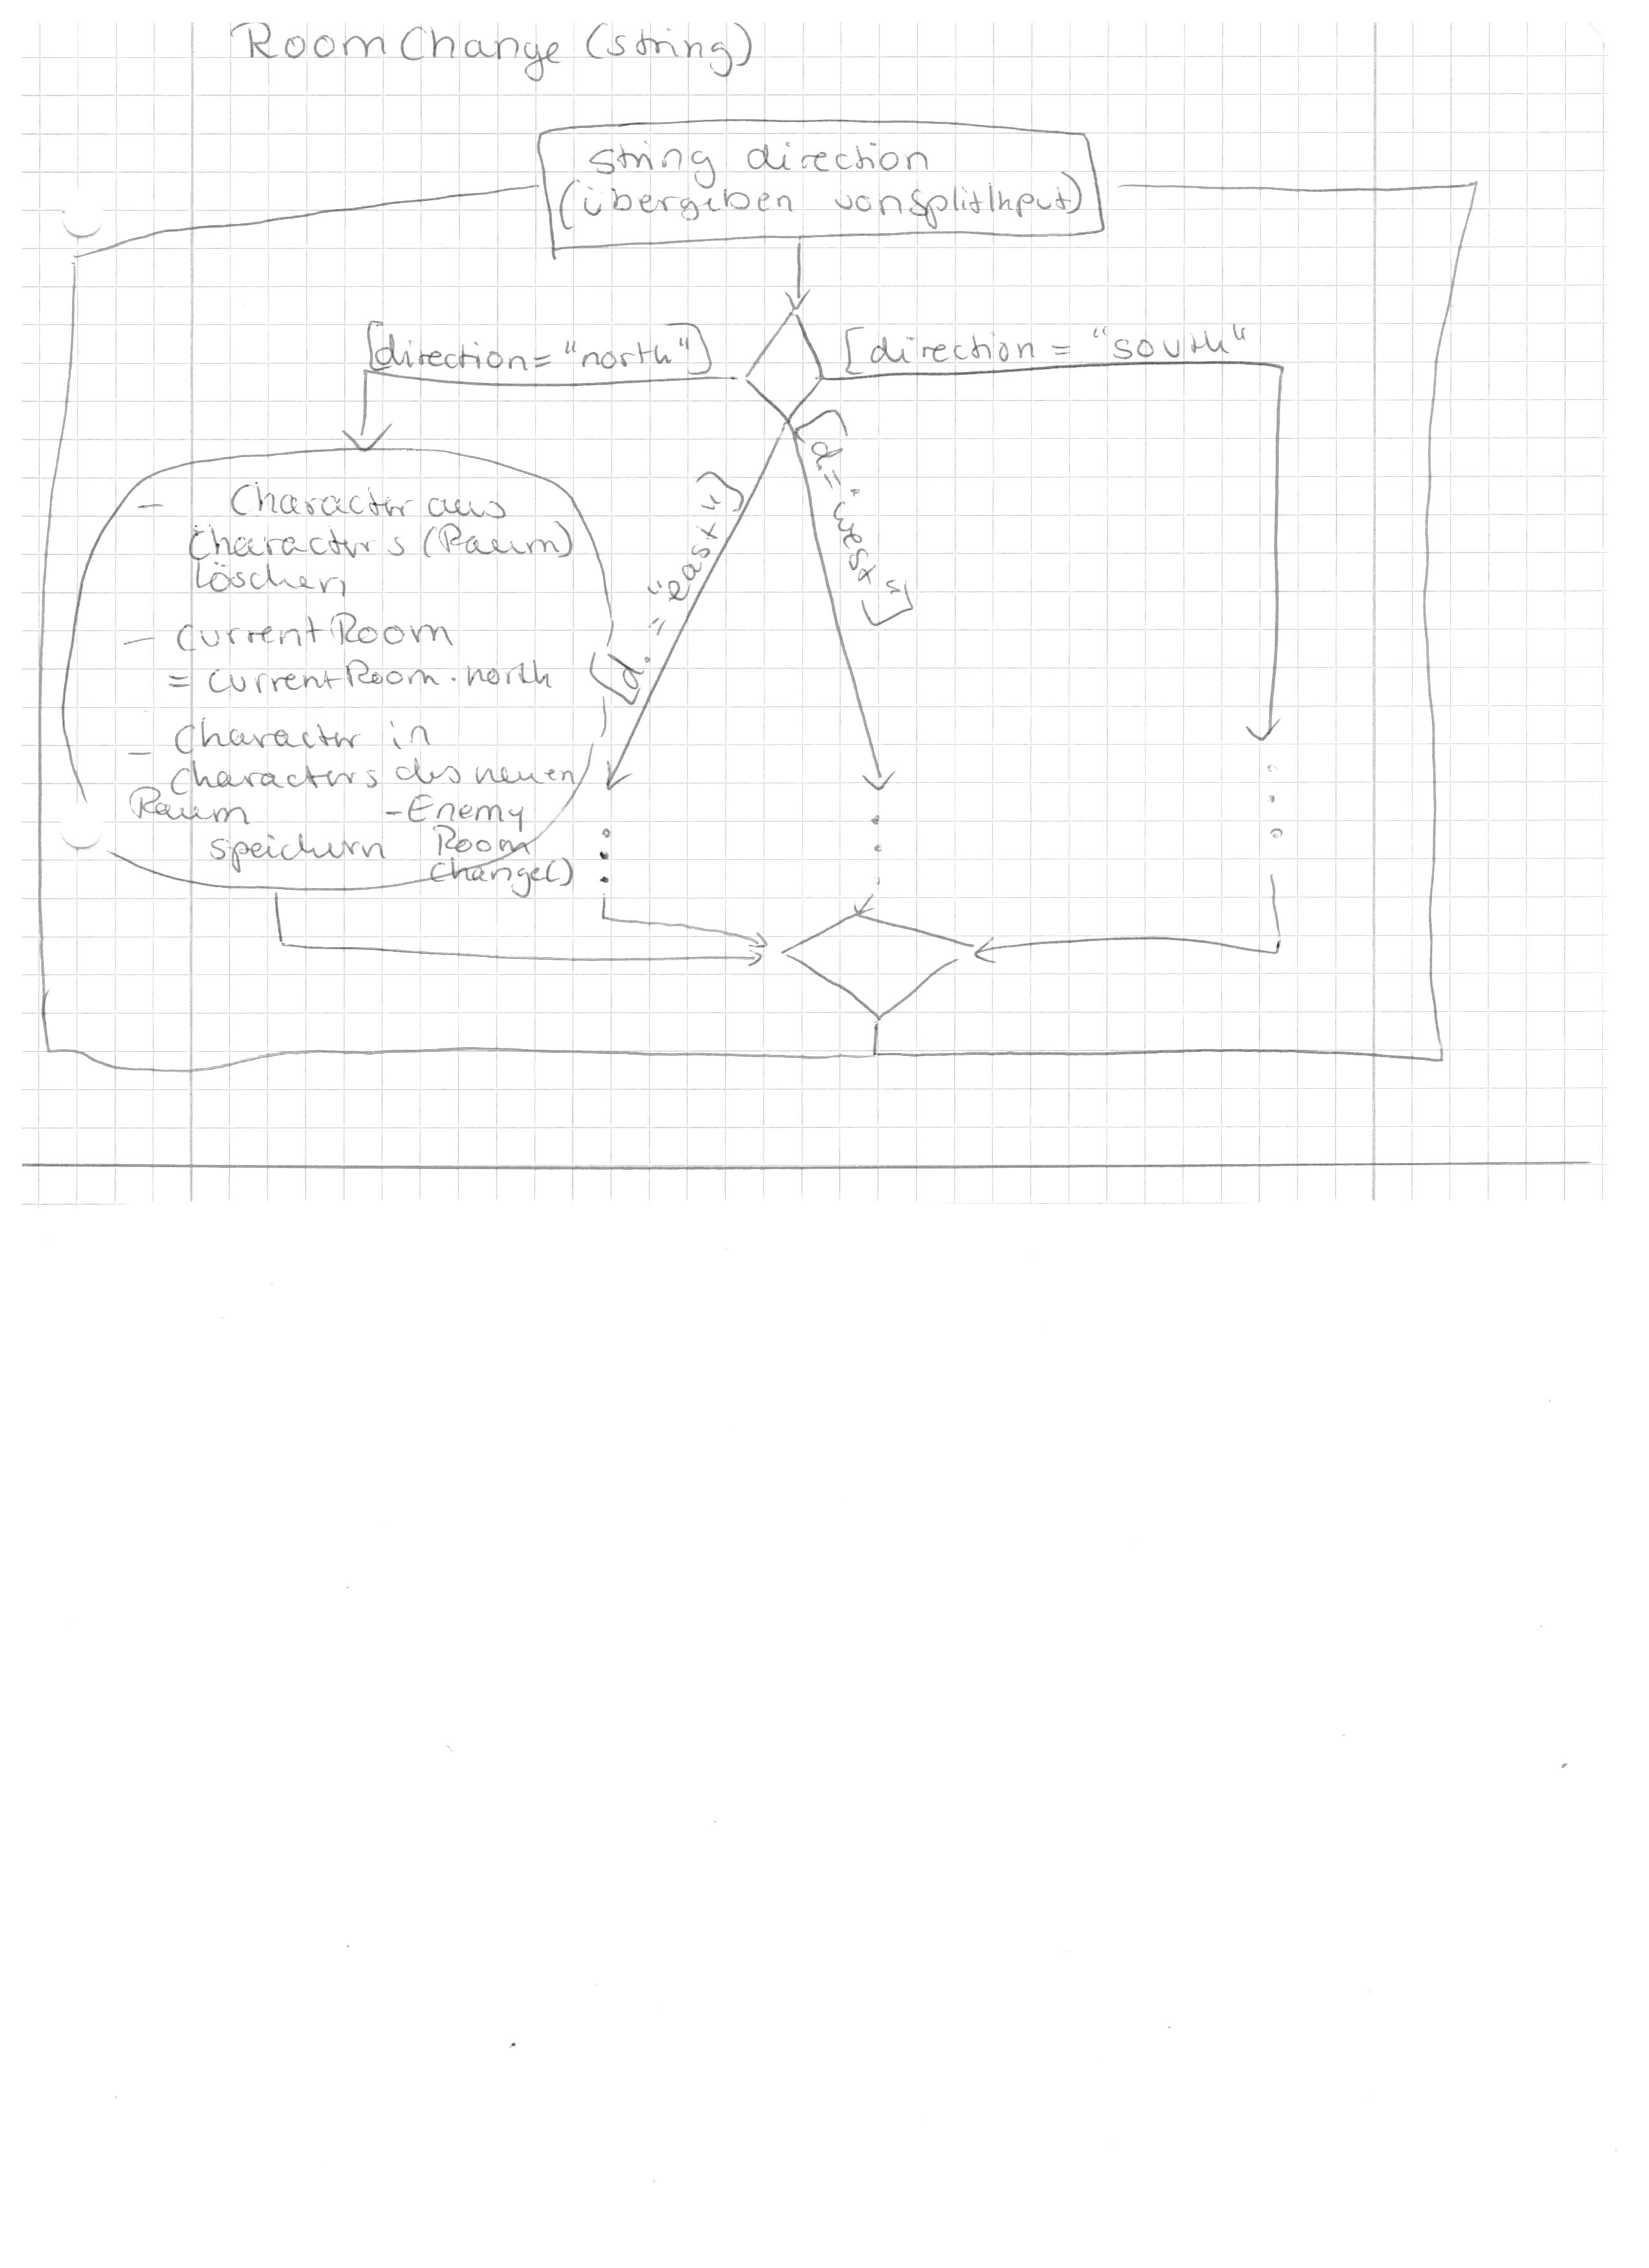 RoomChange (string)
string direction
(übergeben von SplitInput)
[direction = "north"]
[direction = "south"
[d. = "east"]
[d. = "west"]
- Character aus
Characters (Raum)
löschen
- currentRoom
= currentRoom.north
- Character in
Characters des neuen
Raum
speichern
- Enemy
Room
Change()